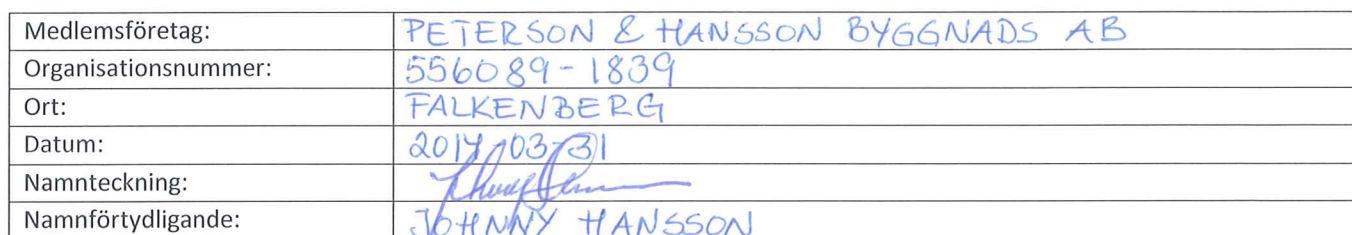 Medlemsföretag: PETERSON & HANSSON BYGGNADS AB
Organisationsnummer: 556089-1839
Ort: FALKENBERG
Datum: 2014-03-31
Namnteckning:
Namnförtydligande: JOHNNY HANSSON